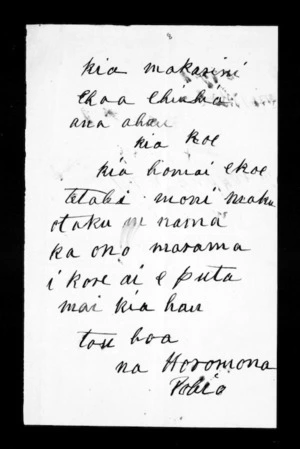 kia makarini
Ehoa Ehiahia
ana ahau
kia koe
kia homai ekoe
tetahi moni maku
otaku m nama
ka ono marama
i kore ai e puta
mai kia hau
tou hoa
na Horomona